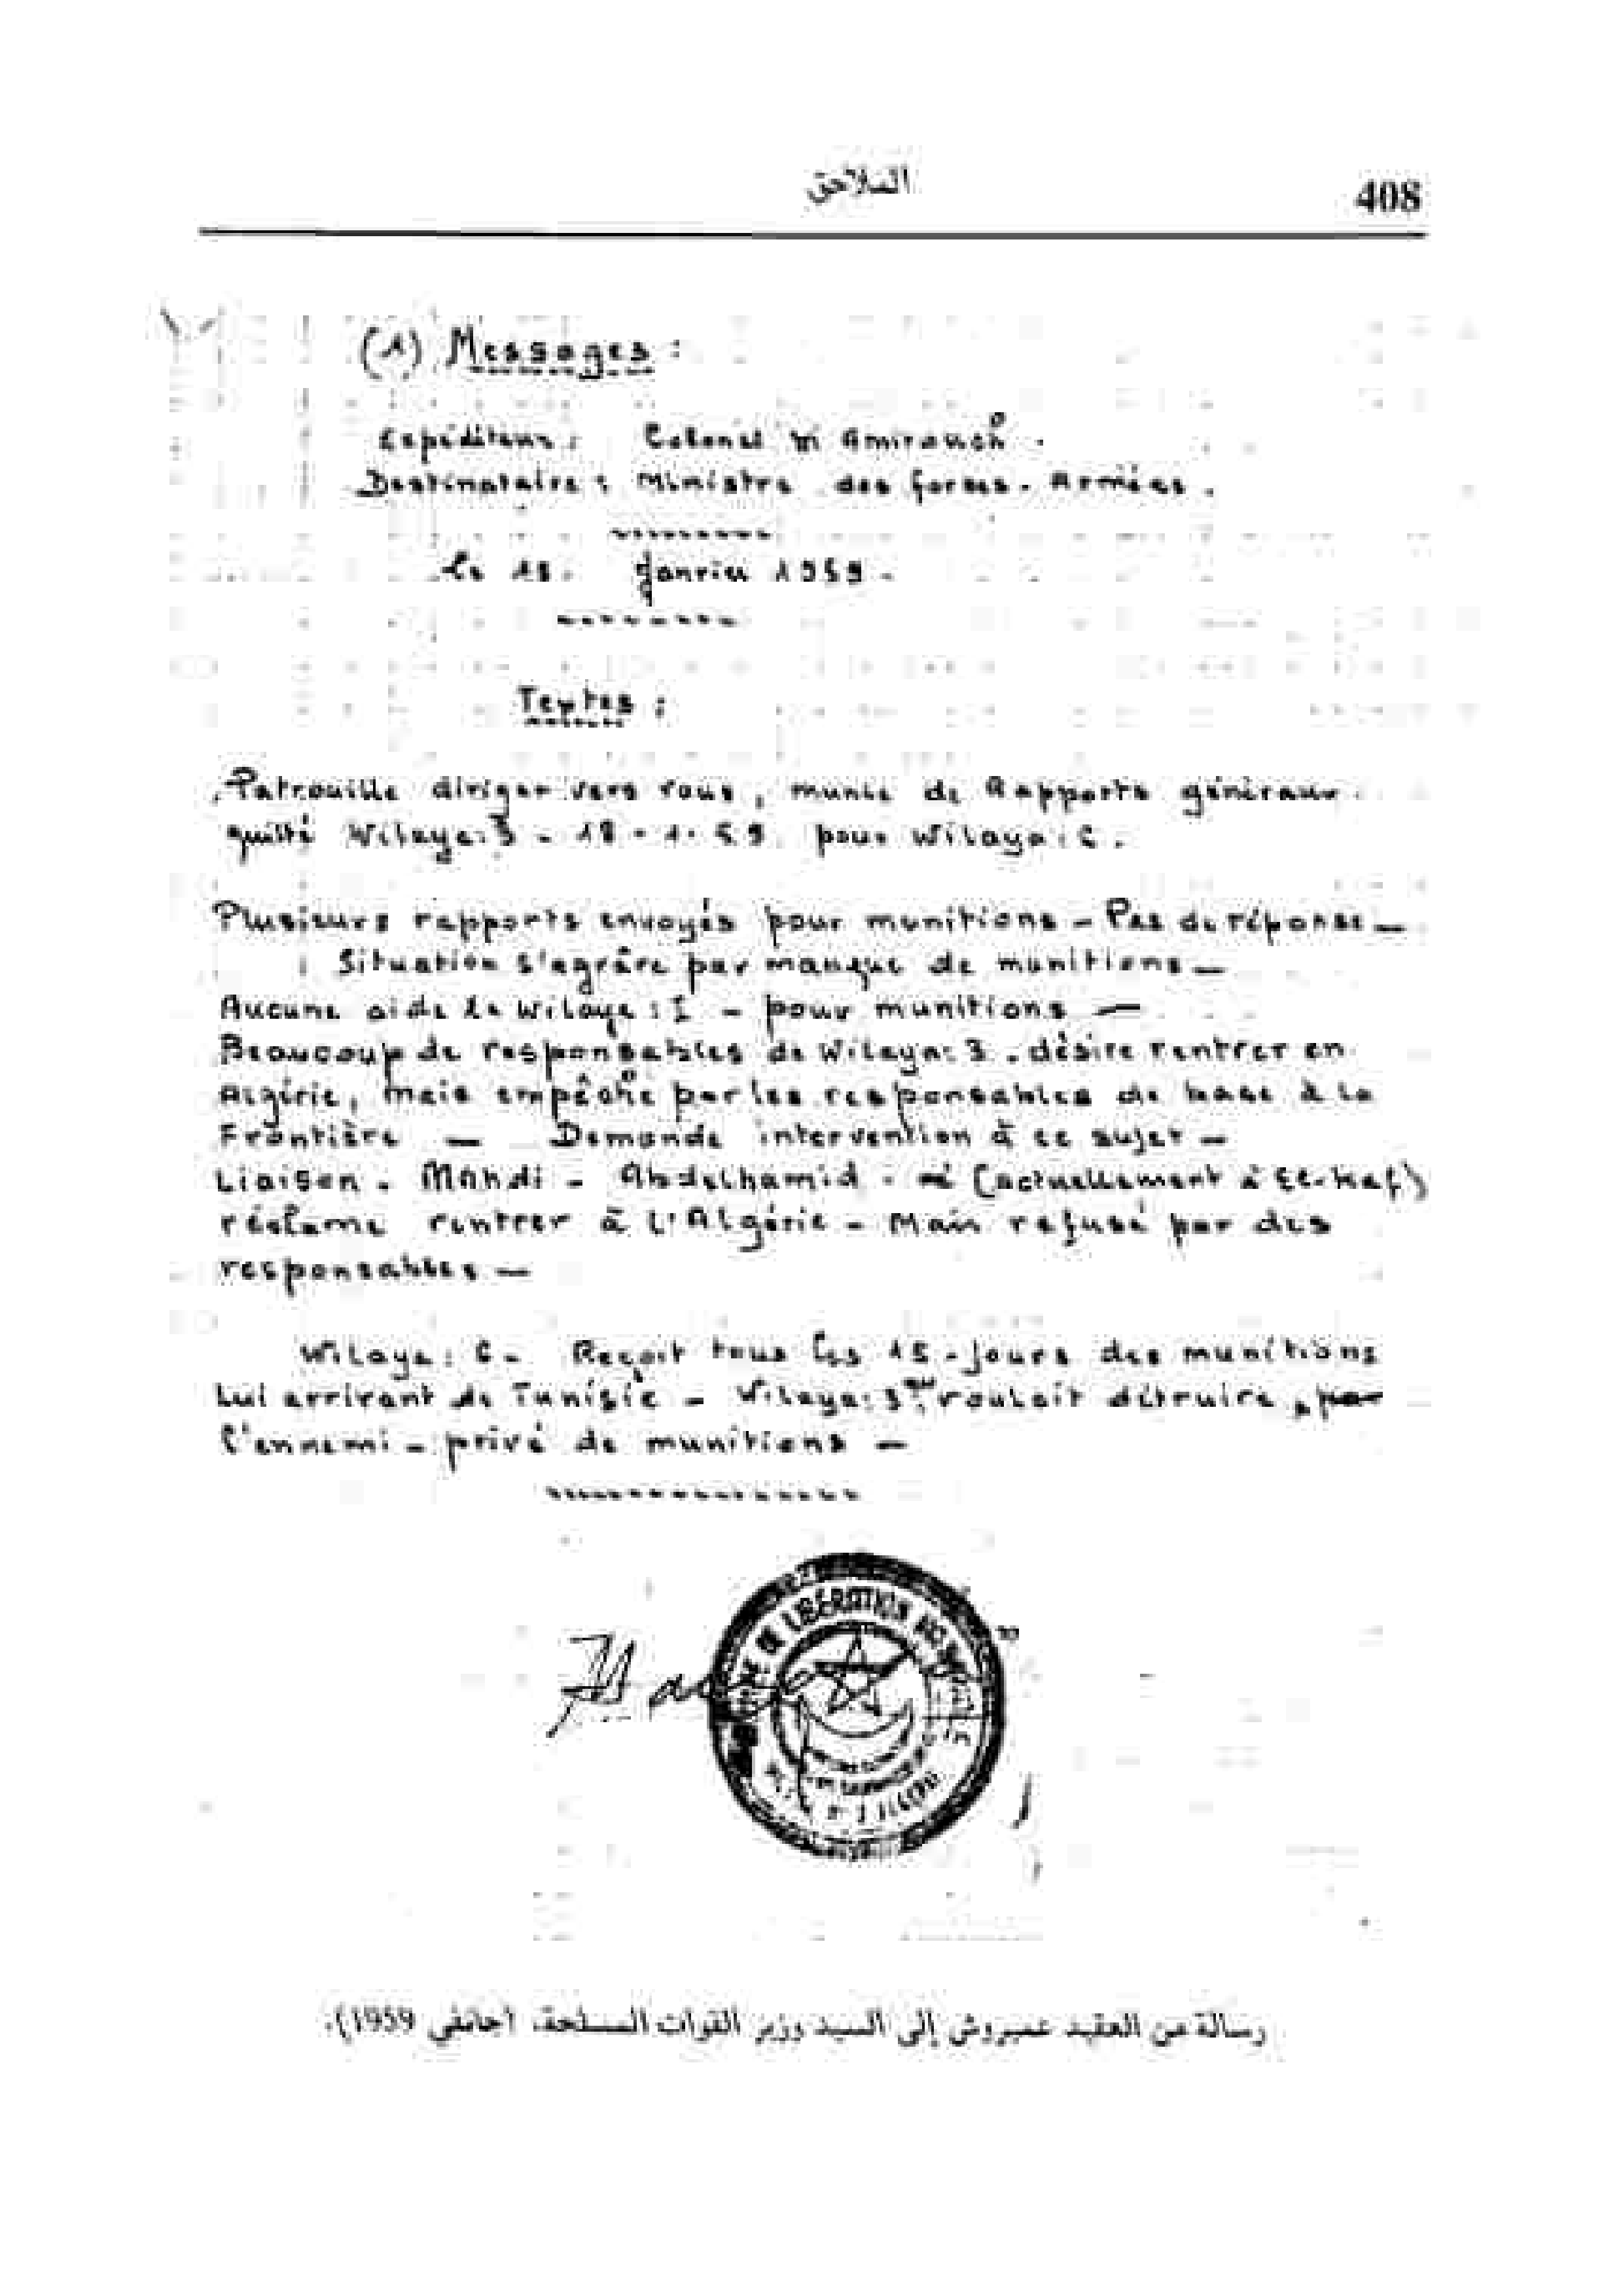 الملاحق
408
(1) Messages :
Expéditeur : Colonel Si Amirouch .
Destinataire : Ministre des forces - Armées .
le 18 . Janvier 1959 .
Textes :
Patrouille diriger vers vous , munie de Rapports généraux
quitté Wilaya : 3 - 18 - 1 - 59 pour Wilaya :
Plusieurs rapports envoyés pour munitions - Pas de réponse -
Situation s'agrâve par manque de munitions -
Aucune aide de Wilaya : I - pour munitions -
Beaucoup de responsables de Wilaya : 3 . désire rentrer en
Algérie , mais empêché par les responsables de base à la
Frontière - Demande intervention à ce sujet -
Liaison - Mahdi - Abdelhamid - (actuellement à El-Kef)
réclame rentrer à l'Algérie - Mais refusé par des
responsables -
Wilaya : - Reçoit tous les 15 - jours des munitions
lui arrivant de Tunisie - Wilaya : 3 voulait détruire , par
l'ennemi - privé de munitions -
DE LIBÉRATION
رسالة من العقيد عميروش إلى السيد وزير القوات المسلحة. (جانفي 1959).